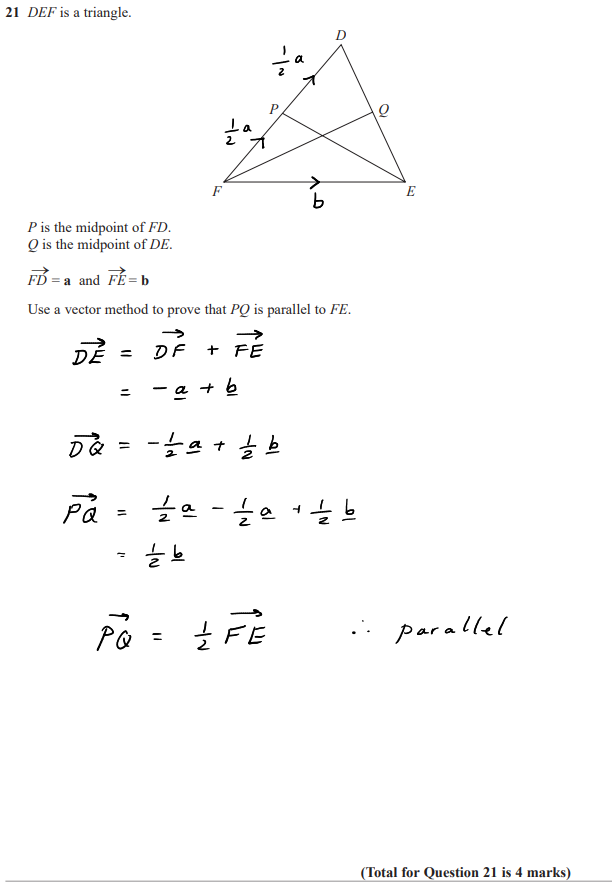 21 DEF is a triangle.
D
½ a
P
Q
½ a
F
E
b
P is the midpoint of FD.
Q is the midpoint of DE.
→FD = a and →FE = b
Use a vector method to prove that PQ is parallel to FE.
→DE = →DF + →FE
= − a + b
→DQ = − ½ a + ½ b
→PQ = ½ a − ½ a + ½ b
= ½ b
→PQ = ½ →FE ∴ parallel
(Total for Question 21 is 4 marks)